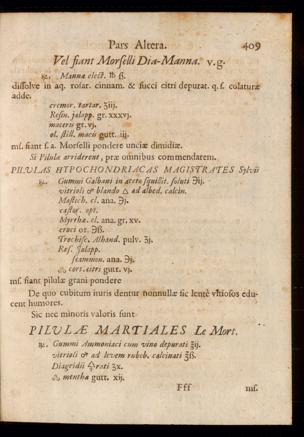 Pars Altera. 409
Vel fiant Morselli Dia-Manna. v.g.
℞. Manna elect. ℔ ß.
dissolve in aq. rosar. cinnam. & succi citri depurat. q.s. colaturæ
adde.
cremor. tartar. ʒiij.
Resin. jalapp. gr. xxxvj.
maceris gr. vj.
ol. still. macis gutt. iij.
ms. fiant s.a. Morselli pondere unciæ dimidiæ.
Si Pilulæ arriderent, præ omnibus commendarem.
PILULAS HYPOCHONDRIACAS MAGISTRATES Sylvii
℞. Gummi Galbani in aceto squillit. soluti ℈ij.
vitrioli ♂ blando △ ad albed. calcin.
Mastich. el. ana. ℈j.
castor. opt.
Myrrhæ. el. ana. gr. xv.
croci or. ℈ß.
Trochisc. Alhand. pulv. ℈j.
Res. Jalapp.
scammon. ana. ℈j.
cort. citri gutt. vj.
ms. fiant pilulæ grani pondere
De quo cubitum ituris dentur nonnullæ sic lentè vitiosos edu-
cent humores.
Sic nec minoris valoris sunt
PILULÆ MARTIALES Le Mort.
℞. Gummi Ammoniaci cum vino depurati ʒij.
vitrioli ♂ ad levem rubed. calcinati ʒß.
Diagridii ʒx.
menthæ gutt. xij.
Fff ms.